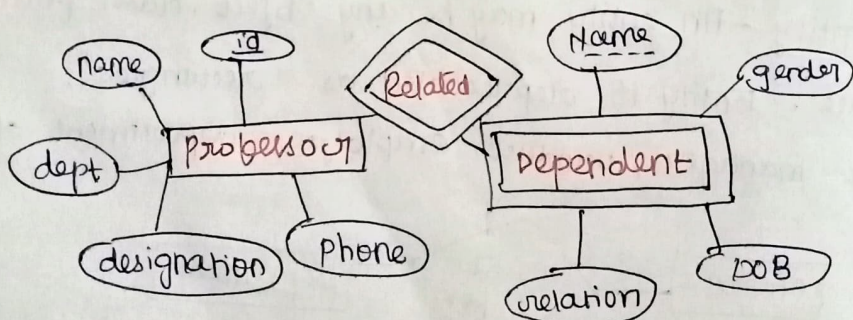 name
id
Related
Name
gender
dept
Professor
Dependent
designation
phone
relation
DOB